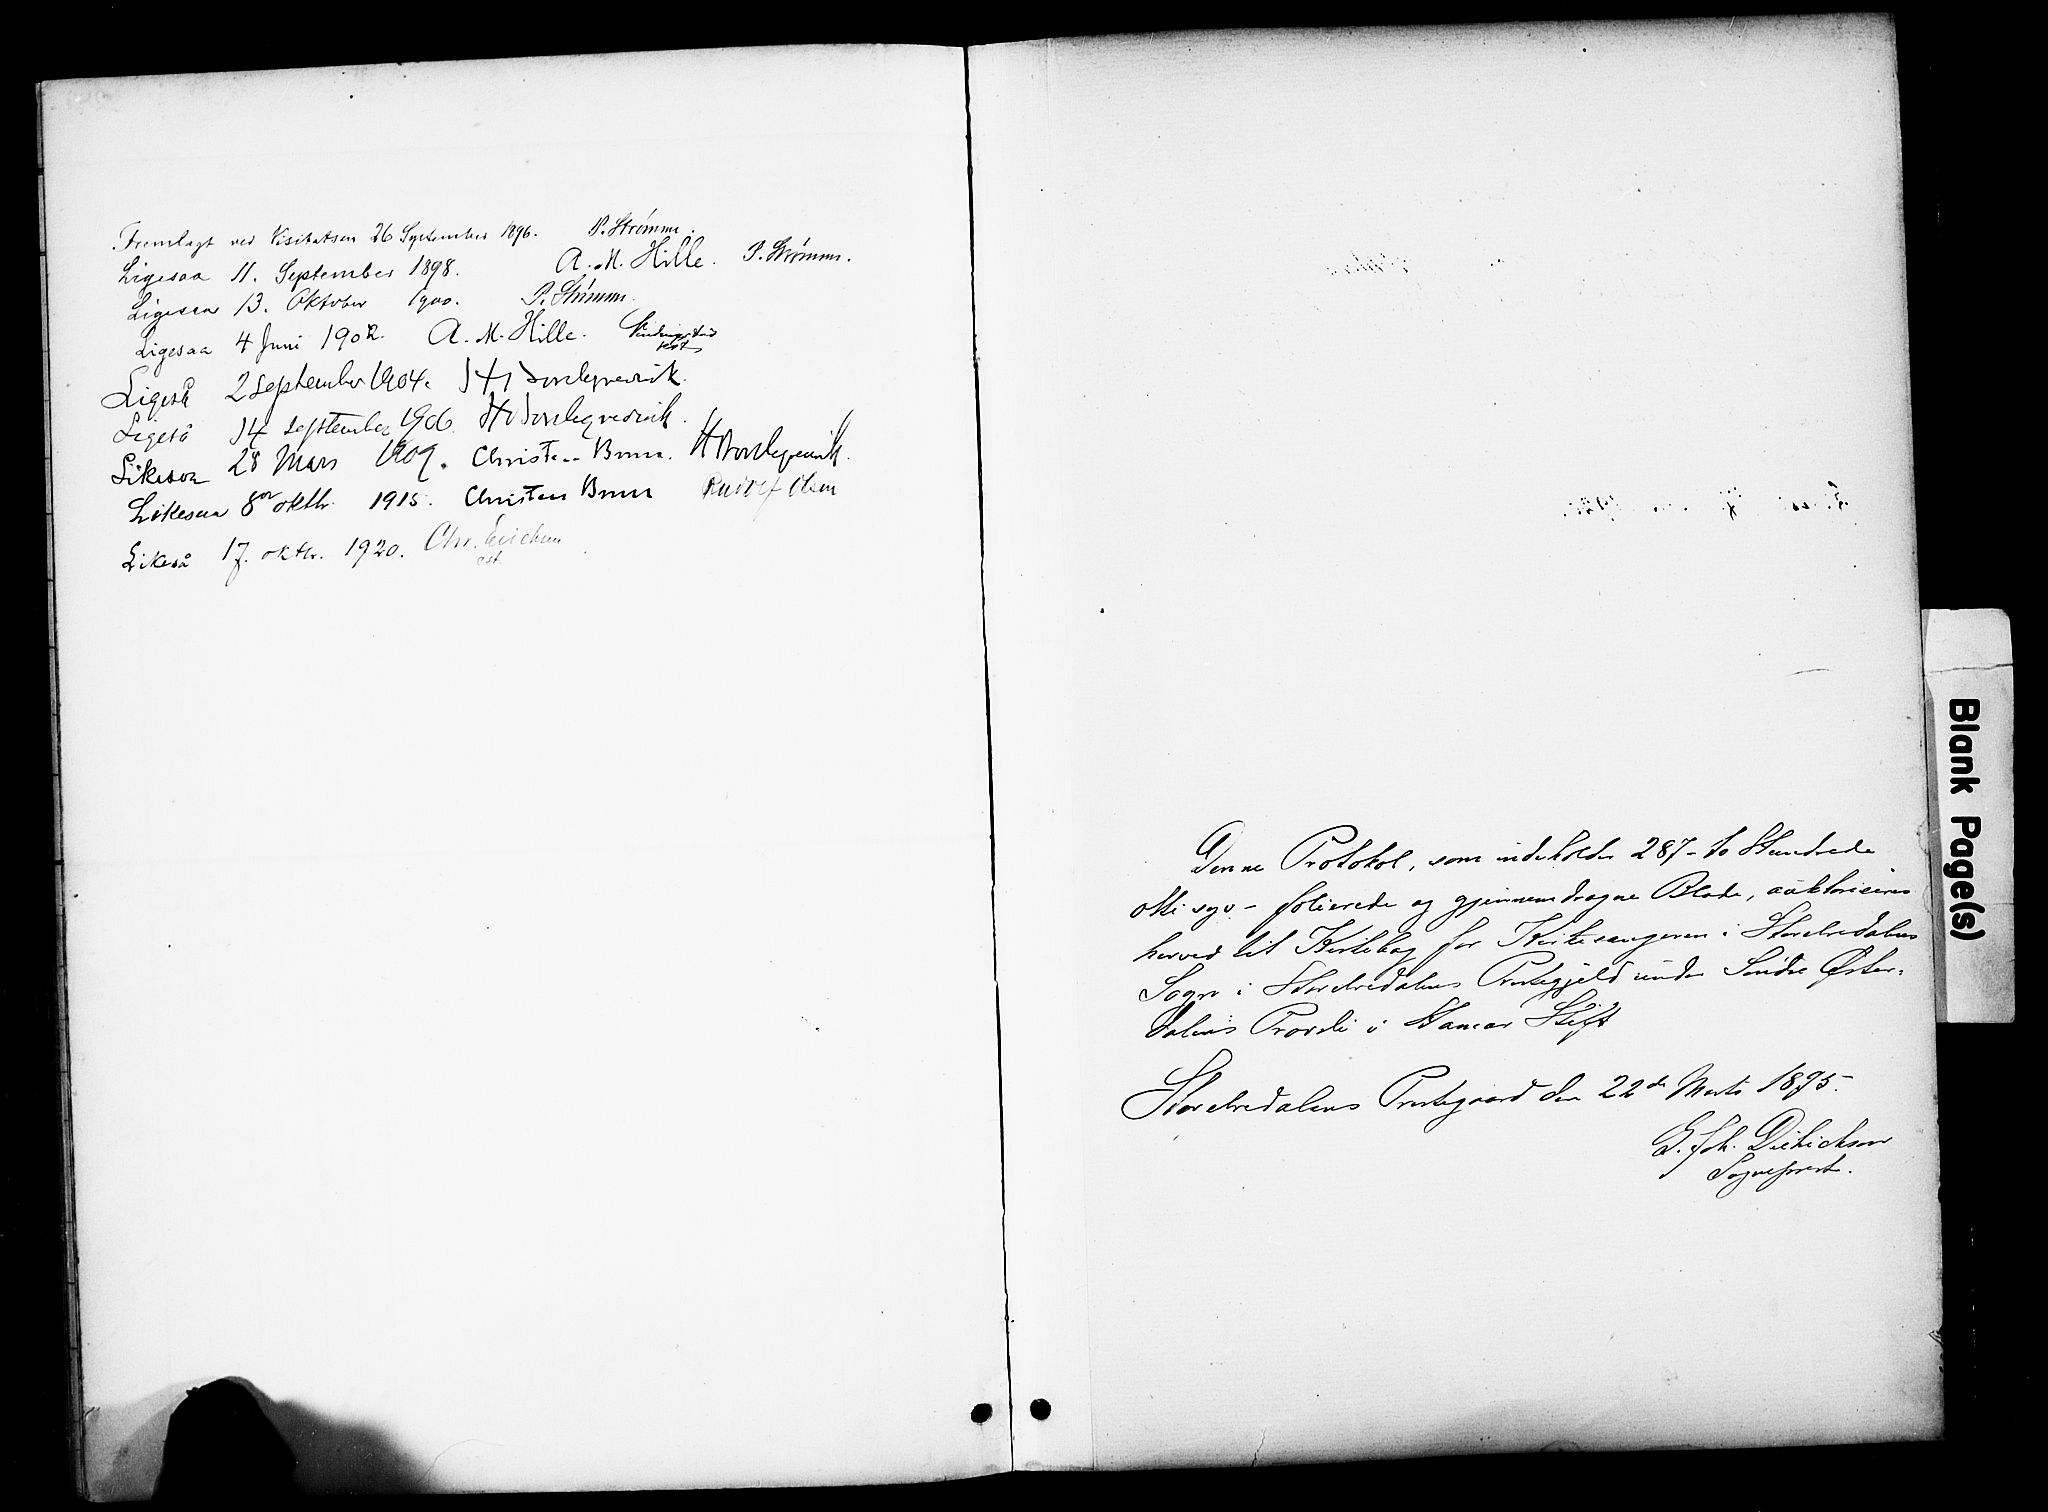 Fremlagt ved Visitatsen 26 September 1896. P. Strømme.
Ligesaa 11. September 1898. A. M. Hille. P. Strømme.
Ligesaa 13. Oktober 1900. P. Strømme.
Ligesaa 4 Juni 1902. A. M. Hille.
Ligeså 2 september 1904.
Ligeså 14 september 1906.
Likesaa 28 Mars 1909. Christen Brun.
Likesaa 8de oktbr. 1915. Christen Brun Rudolf Olsen
Likeså 17. oktbr. 1920. Chr.
Denne Protokol, som indeholder 287 - to Hundrede
otti syv - folierede og gjennemdragne Blade, auktoriseres
herved til Kirkebog for Kirkesangeren i Storelvedalens
Sogn i Storelvedalens Prestegjeld under Søndre Øster-
dalens Provsti i Hamar Stift
Storelvedalens Prestegaard den 22de Marts 1895.
G. Joh. Dietrichson
Sogneprest.
Blank Page(s)